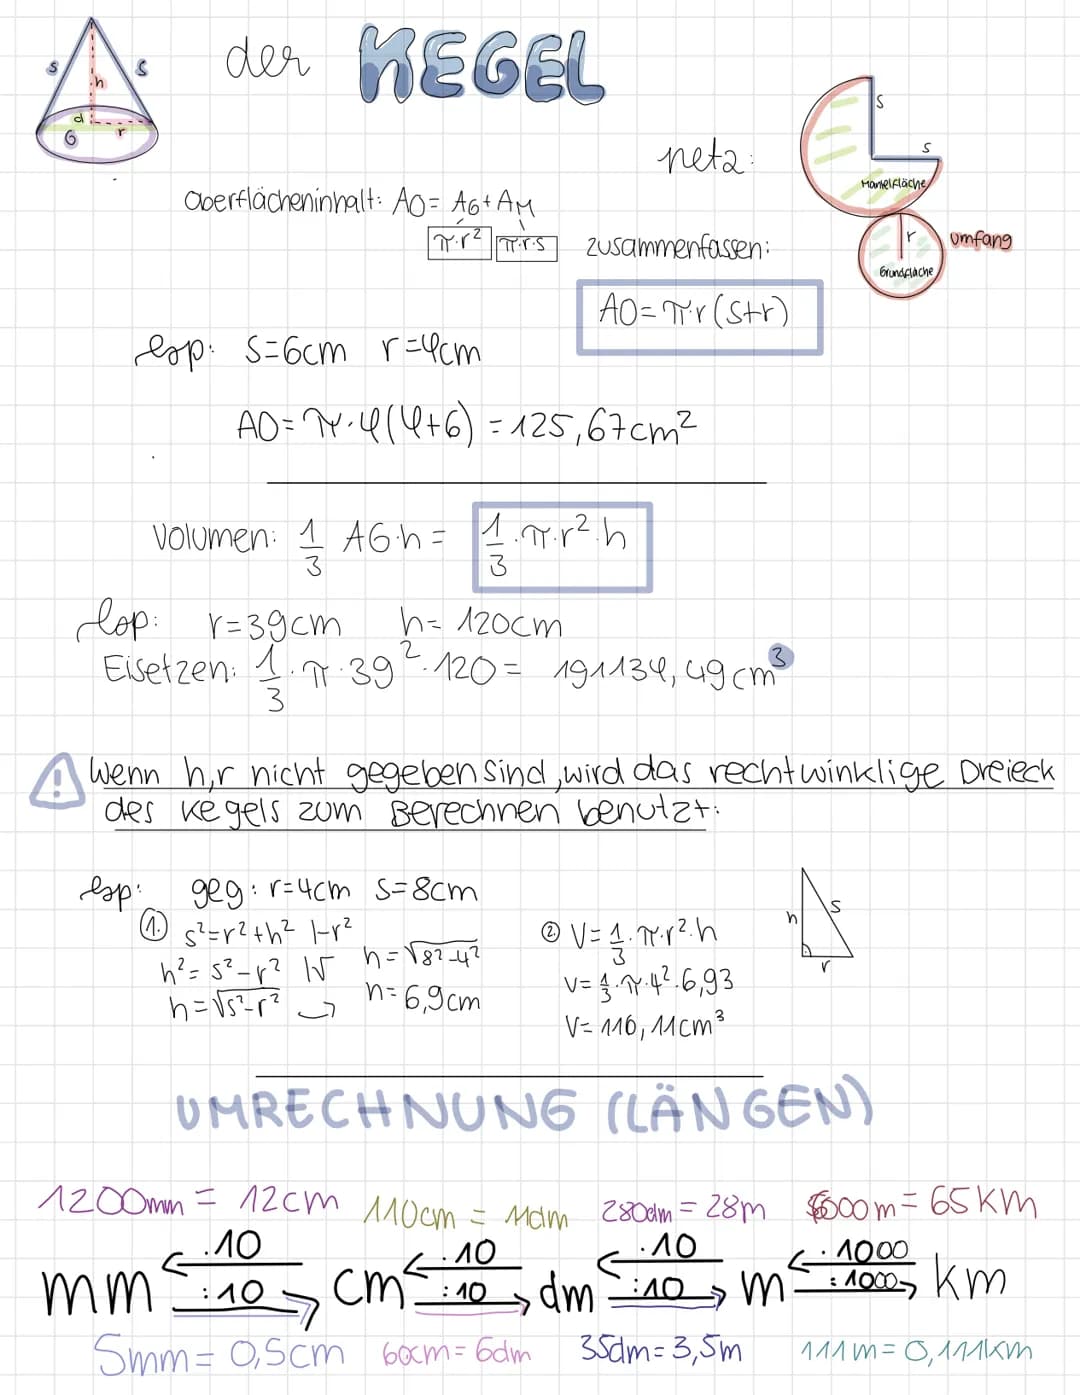 der KEGEL
s
s
h
d
r
G
netz:
s
s
Mantelfläche
r
Grundfläche
Umfang
Oberflächeninhalt: AO= AG+AM
π·r² π·r·s
zusammenfassen:
AO=π·r(s+r)
bsp: s=6cm r=4cm
AO=π·4(4+6) = 125,67cm²
Volumen: 1/3 AG·h = 1/3·π·r²·h
bsp: r=39cm h= 120cm
Eisetzen: 1/3·π·39²·120= 191134,49cm³
! Wenn h,r nicht gegeben sind, wird das rechtwinklige Dreieck
des Kegels zum Berechnen benutzt:
bsp: geg: r=4cm s=8cm
1. s²=r²+h² |-r²
h²= s²-r² |√
h=√s²-r²
h=√8²-4²
h=6,9cm
2. V=1/3·π·r²·h
V=1/3·π·4²·6,93
V= 116,11cm³
h
s
r
UMRECHNUNG (LÄNGEN)
1200mm = 12cm 110cm = 11dm 280dm = 28m 6500m = 65KM
·10 ·10 ·10 ·1000
mm cm dm m km
:10 :10 :10 :1000
5mm= 0,5cm 60cm=6dm 35dm=3,5m 111m=0,111km